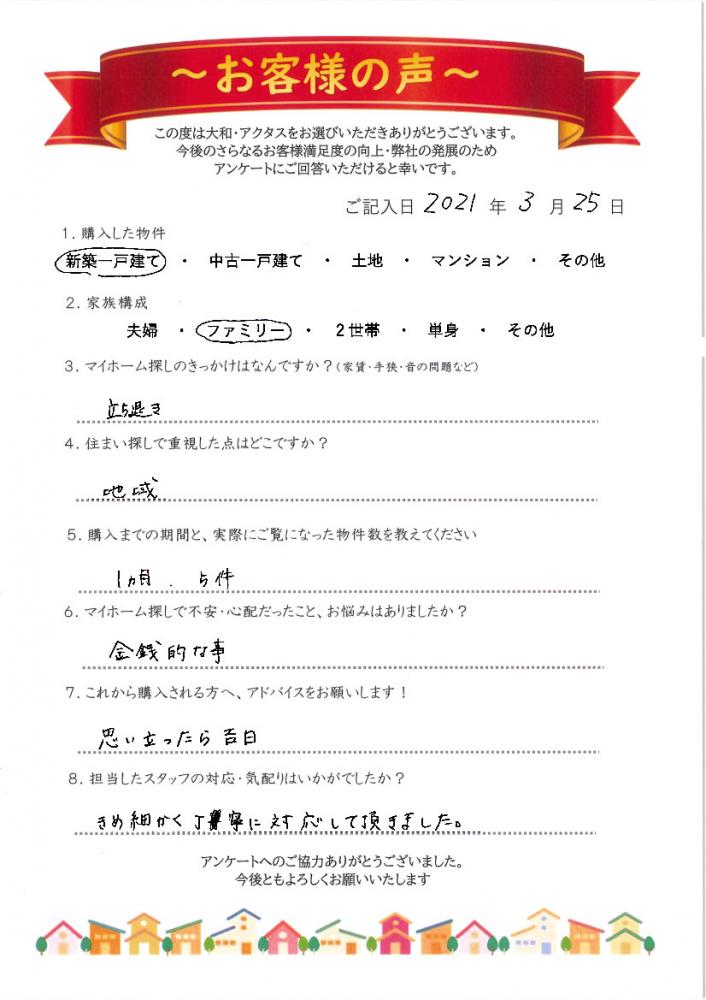 ～お客様の声～
この度は大和・アクタスをお選びいただきありがとうございます。
今後のさらなるお客様満足度の向上・弊社の発展のため
アンケートにご回答いただけると幸いです。
ご記入日 2021 年 3 月 25 日
1. 購入した物件
新築一戸建て ・ 中古一戸建て ・ 土地 ・ マンション ・ その他
2. 家族構成
夫婦 ・ ファミリー ・ 2世帯 ・ 単身 ・ その他
3. マイホーム探しのきっかけはなんですか？(家賃・手狭・音の問題など)
立ち退き
4. 住まい探しで重視した点はどこですか？
地域
5. 購入までの期間と、実際にご覧になった物件数を教えてください
1ヵ月. 5件
6. マイホーム探しで不安・心配だったこと、お悩みはありましたか？
金銭的な事
7. これから購入される方へ、アドバイスをお願いします！
思い立ったら吉日
8. 担当したスタッフの対応・気配りはいかがでしたか？
きめ細かく丁寧に対応して頂きました。
アンケートへのご協力ありがとうございました。
今後ともよろしくお願いいたします